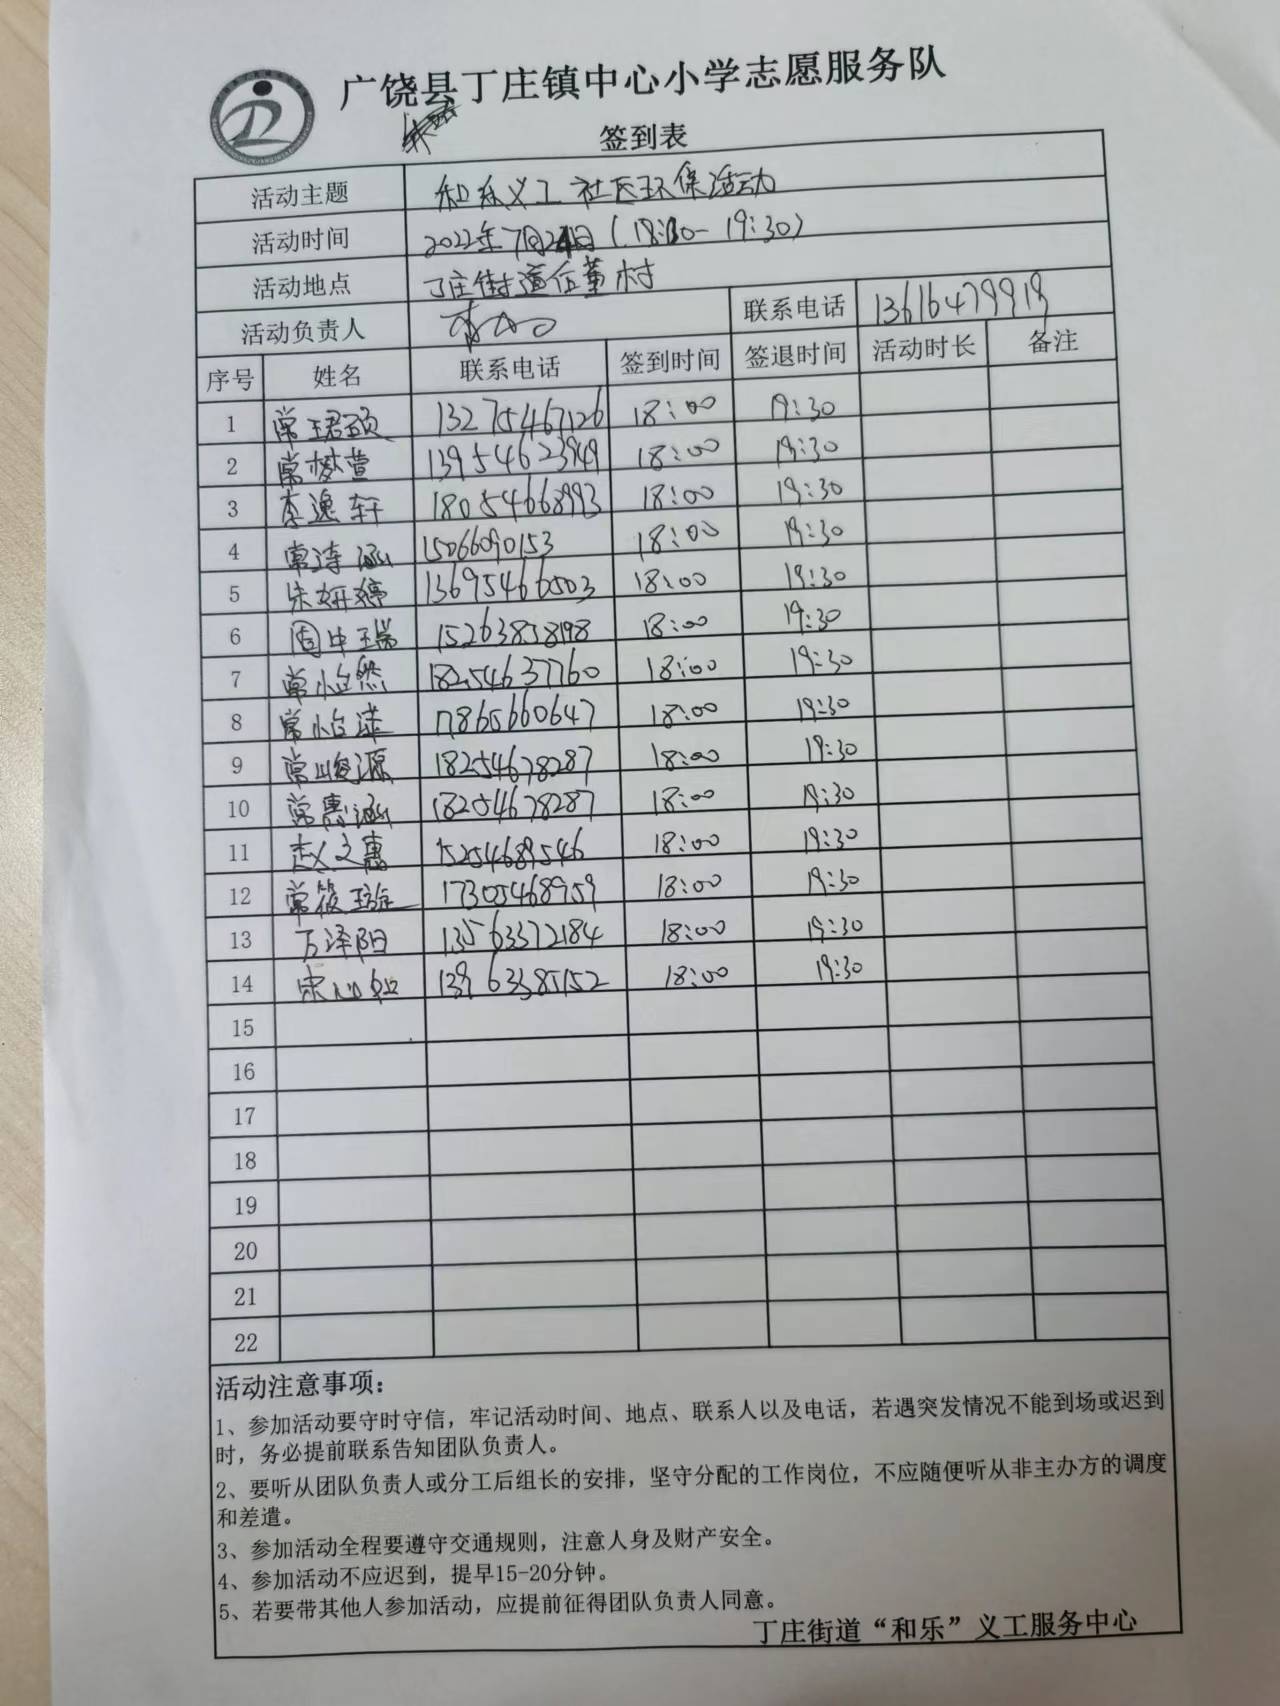 广饶县丁庄镇中心小学志愿服务队
签到表
活动主题 和乐义工社区环保活动
活动时间 2022年7月24日(18:00-19:30)
活动地点 丁庄街道任董村
活动负责人 联系电话 13616479919
序号 姓名 联系电话 签到时间 签退时间 活动时长 备注
1 常珺颐 13275467126 18:00 19:30
2 常梦萱 13954623949 18:00 19:30
3 李逸轩 18054668993 18:00 19:30
4 常涛涵 15066090153 18:00 19:30
5 朱妍婷 13695466503 18:00 19:30
6 周中瑞 15263858198 18:00 19:30
7 常怡然 18254637760 18:00 19:30
8 常怡漾 17865660647 18:00 19:30
9 常峻源 18254678287 18:00 19:30
10 常惠涵 18254678287 18:00 19:30
11 赵文惠 15254689546 18:00 19:30
12 常筱璇 17305468959 18:00 19:30
13 万泽阳 13563372184 18:00 19:30
14 宋心如 13963385152 18:00 19:30
15
16
17
18
19
20
21
22
活动注意事项：
1、参加活动要守时守信，牢记活动时间、地点、联系人以及电话，若遇突发情况不能到场或迟到
时，务必提前联系告知团队负责人。
2、要听从团队负责人或分工后组长的安排，坚守分配的工作岗位，不应随便听从非主办方的调度
和差遣。
3、参加活动全程要遵守交通规则，注意人身及财产安全。
4、参加活动不应迟到，提早15-20分钟。
5、若要带其他人参加活动，应提前征得团队负责人同意。
丁庄街道“和乐”义工服务中心